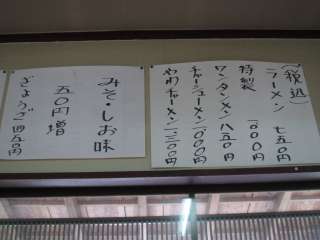 (税込)
ラーメン 七五〇円
特製 一〇〇〇円
ワンタンメン 八五〇円
チャーシューメン 一〇〇〇円
やわチャーメン 一二〇〇円
みそ・しお味
五〇円増
ぎょうざ 四五〇円